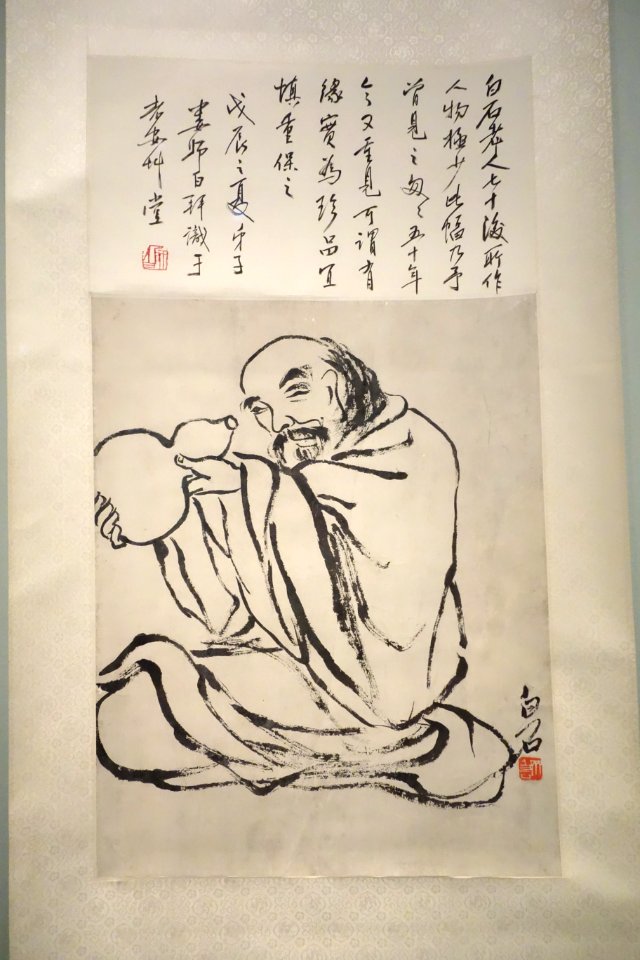 白石老人七十後所作
人物極少此幅乃予
曾見之匆〻五十年
今又重見可謂有
緣實為珍品宜
慎重保之
戊辰之夏弟子
婁師白拜識于
老安艸堂
白石